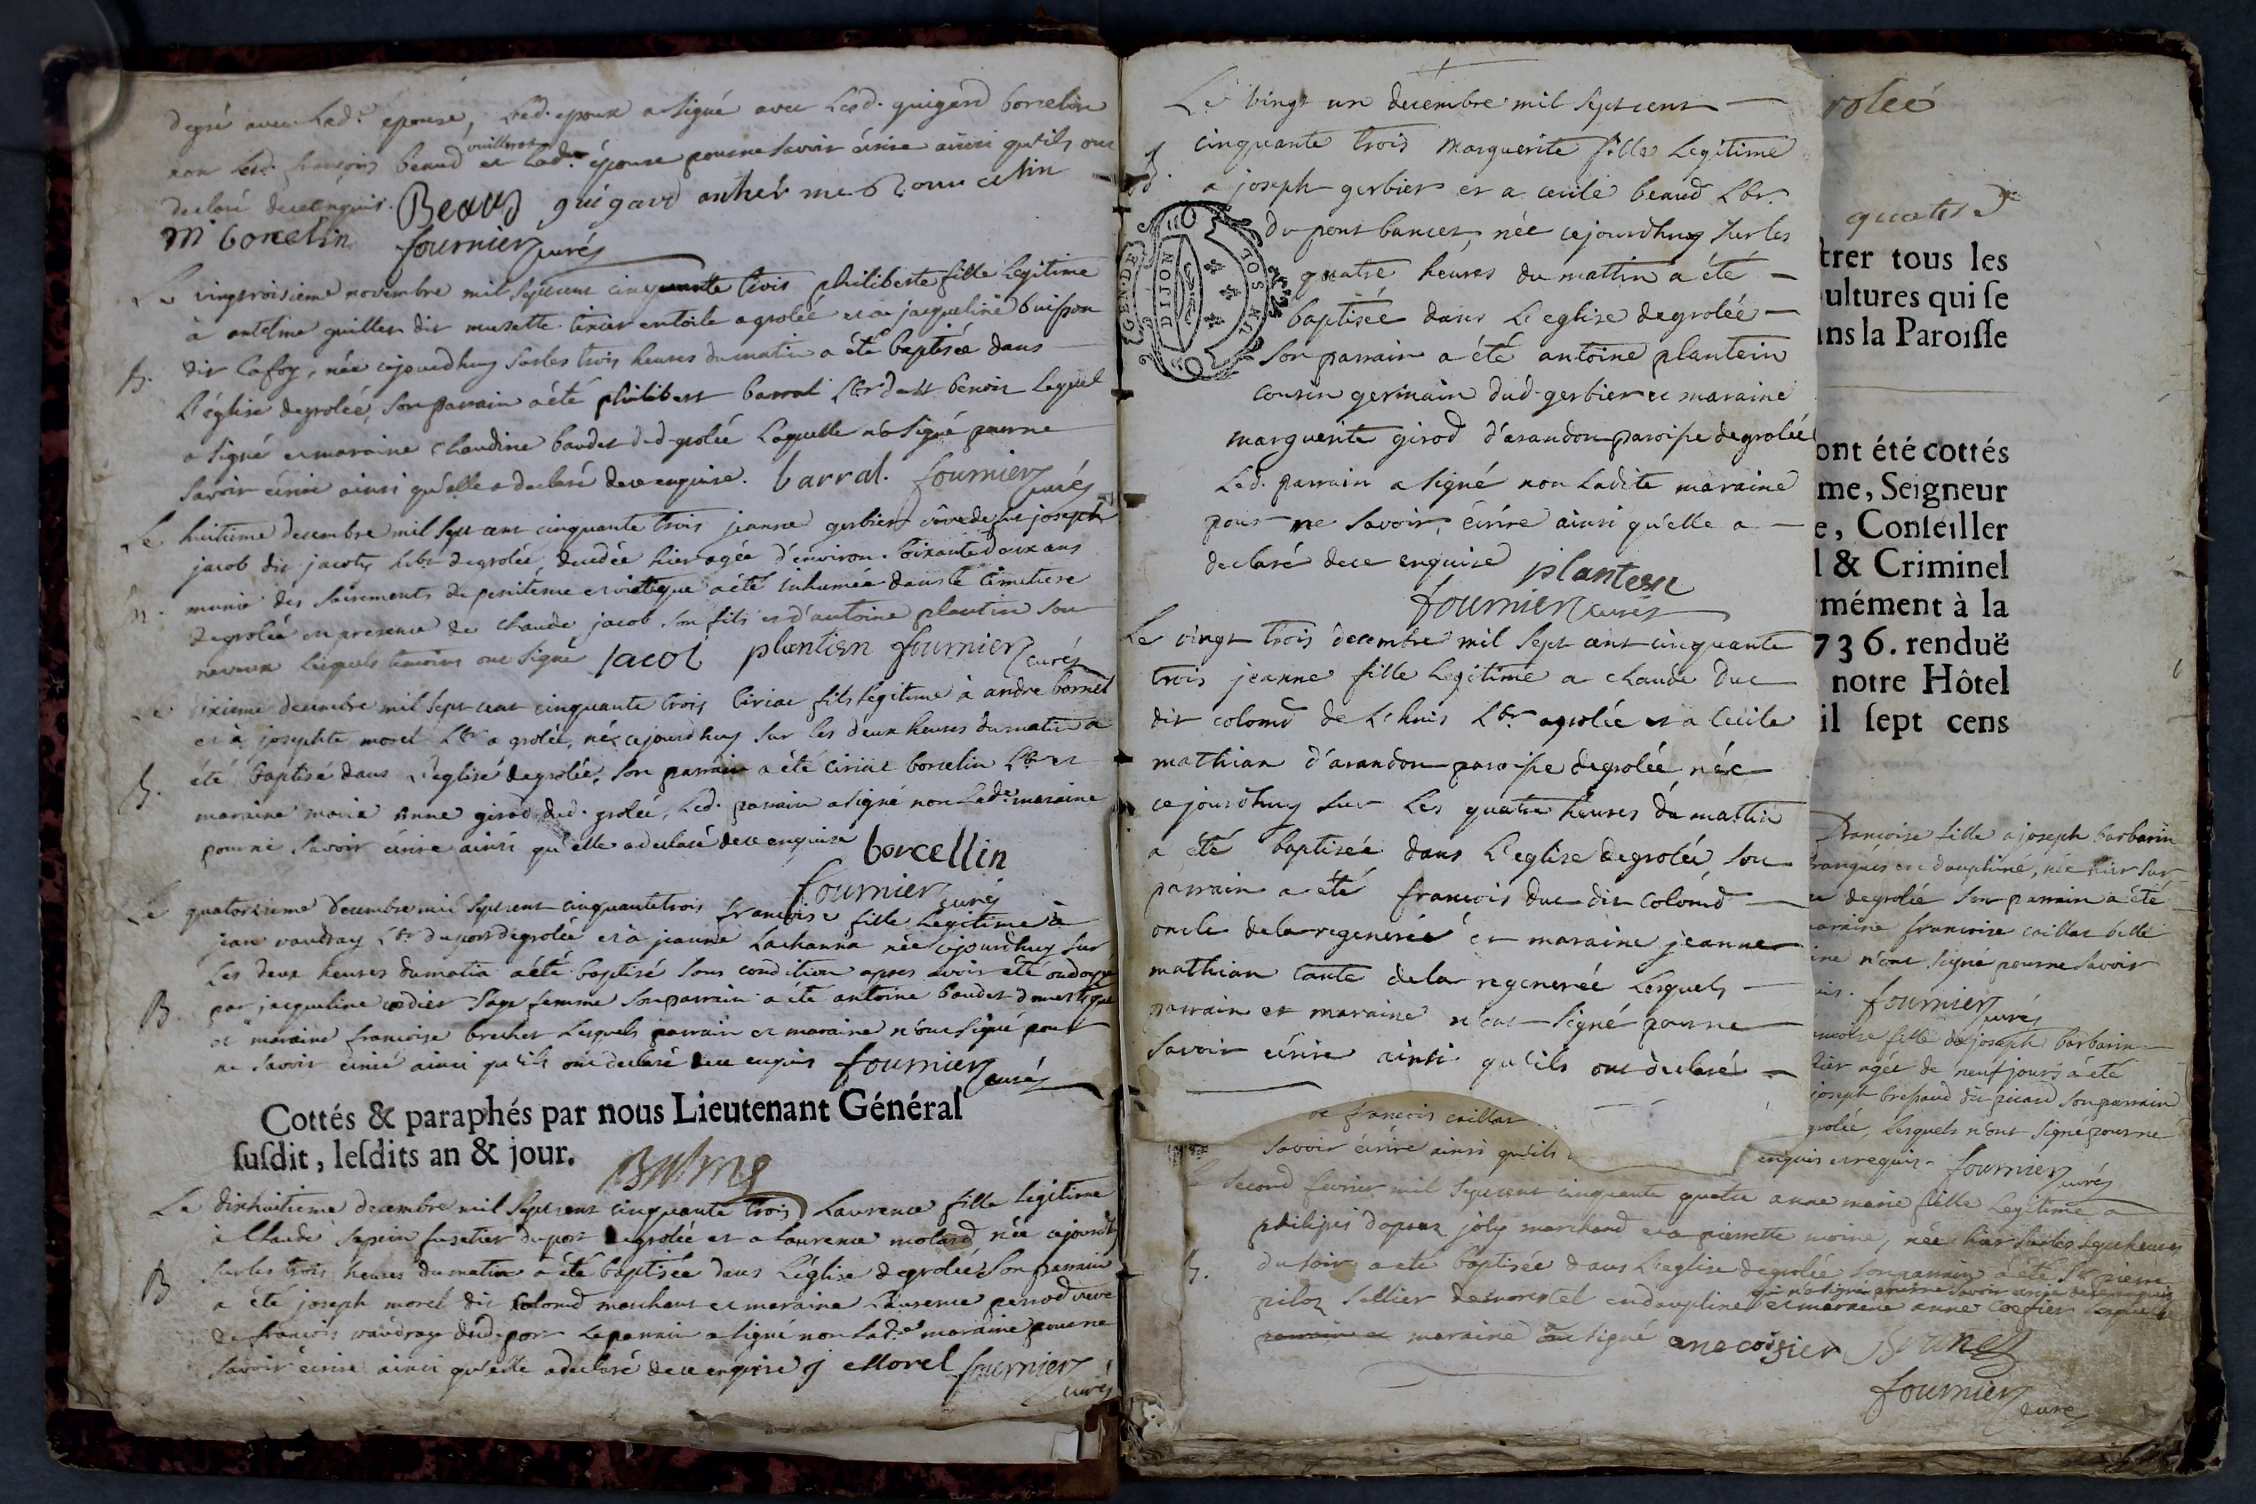 degré avec lad.e epouse, Led. epoux a signé avec Lesd. guigard borcelin
non led. françois beaud et lad.e épouse pour ne savoir écrire ainsi qu'ils ont
vuilleros
declaré de ce enquis. Beaud guigard anthelme Borncelin
m borcelin fournier curé
Le vingtroisieme novembre mil sept cent cinquante trois philiberte fille legitime
à antelme guillet dit musette tixier en toile a grolée et a jacqueline buisson
B. dit lafoy, née cejourdhuy sur les trois heures du matin a été baptisée dans
L'église de grolée, son parrain a été philibert barral Lbr de st benoit lequel
a signé et maraine claudine baudet dud. grolée laquelle n'a signé pour ne
savoir écrire ainsi qu'elle a declaré de ce enquise. barral. fournier curé
Le huitieme decembre mil sept cent cinquante trois jeanne gerbier veuve de fut joseph
jacob dit jacoty Lbr de grolée, decedée hier agée d'environ soixante doux ans
munie des sacrements de penitence et viatique a été inhumée dans le cimetiere
de grolée en presence de claude jacob son fils et d'antoine plantin son
neveux lesquels temoins ont signé jacob plantien fournier curé
Le dixieme decembre mil sept cent cinquante trois ciriac fils legitime à andre bornet
et à josephte morel Lbr a grolée, né cejourdhuy sur les deux heures du matin a
B. été baptisé dans L'eglise de grolée, son parrain a été ciriac borcelin Lbr et
maraine marie anne girod dud. grolée, Led. parrain a signé non lad.e maraine
pour ne savoir écrire ainsi qu'elle a declaré de ce enquise borcellin
fournier curé
Le quatorzieme decembre mil sept cent cinquante trois françoise fille legitime à
jean vaudray Lbr du port de grolée et à jeanne Lachanna née cejourdhuy sur
Les deux heures du matin a été baptisé sous condition apres avoir été ondoyé
B. par jacqueline codier sage femme son parrain a été antoine baudet domestique
et maraine françoise brechet lesquels parrain et maraine n'ont signé pour
ne savoir écrire ainsi qu'ils ont declaré de ce enquis fournier curé
Cottés & paraphés par nous Lieutenant Général
suſdit, leſdits an & jour.
Le dixhuitieme decembre mil sept cent cinquante trois Laurence fille legitime
à Claude sapin fusetier du port de grolée et a Laurence molard née cejourdhuy
B sur les trois heures du matin a été baptisée dans L'église de grolée son parrain
a été joseph morel dit colomd marchant et maraine Laurence perrod veuve
de françois vaudray dud. port Le parrain a signé non lad.e maraine pour ne
savoir écrire ainsi qu'elle a declaré de ce enquise j Morel fournier
curé
Le vingt un decembre mil sept cent
cinquante trois marguerite fille Legitime
a joseph gerbier et a cecile beaud Lbr.
du pont bancet, née cejourdhuy sur les
quatre heures du mattin a été
baptisée dans L'eglise de grolée
son parrain a été antoine plantein
cousin germain dud. gerbier et maraine
marguerite girod d'arandon paroisse de grolée
Led. parrain a signé non Ladite maraine
pour ne savoir écrire ainsi qu'elle a
declaré de ce enquise plantein
fournier curé
GEN. DE
DIJON
Le vingt trois decembre mil sept cent cinquante
trois jeanne fille Legitime a claude duc
dit colomd de L'huis Lbr. a grolée et a Cecile
mathian d'arandon paroisse de grolée, née
cejourdhuy sur les quatre heures du mattin
a été baptiseé dans L'eglise de grolée, son
parrain a été françois duc dit colomd
oncle de la regenerée et maraine jeanne
mathian tante de la regenerée Lesquels
parrain et maraine n'ont signé pour ne
savoir écrire ainsi qu'ils ont declaré
rolée
quatre
trer tous les
ultures qui ſe
ans la Paroiſſe
ont été cottés
me, Seigneur
e, Conſeiller
l & Criminel
mément à la
736. renduë
notre Hôtel
il ſept cens
françoise fille a joseph barbarin
en dauphiné, née hier sur
de grolée son parrain a été
maraine françoise caillat belle
n'ont signé pour ne savoir
fournier curé
fille de joseph barbarin
hier agée de neuf jours a été
joseph bressaud dit picard son parrain
grolée, lesquels n'ont signé pour ne
enquis et requis. fournier curé
de françois caillat
savoir écrire ainsi qu'ils
Le second fevrier mil sept cent cinquante quatre anne marie fille Legitime a
philipes joly marchand et a pierrette moine, née hier sur les sept heures
B. du soir a été baptisée dans L'eglise de grolée son parrain a été Sr. pierre
qui n'a signé pour ne savoir écrire de ce enquis
piloz sellier de morestel en dauphiné et maraine anne coefier laquelle
parrain et maraine ont signé anne coisier
fournier
curé